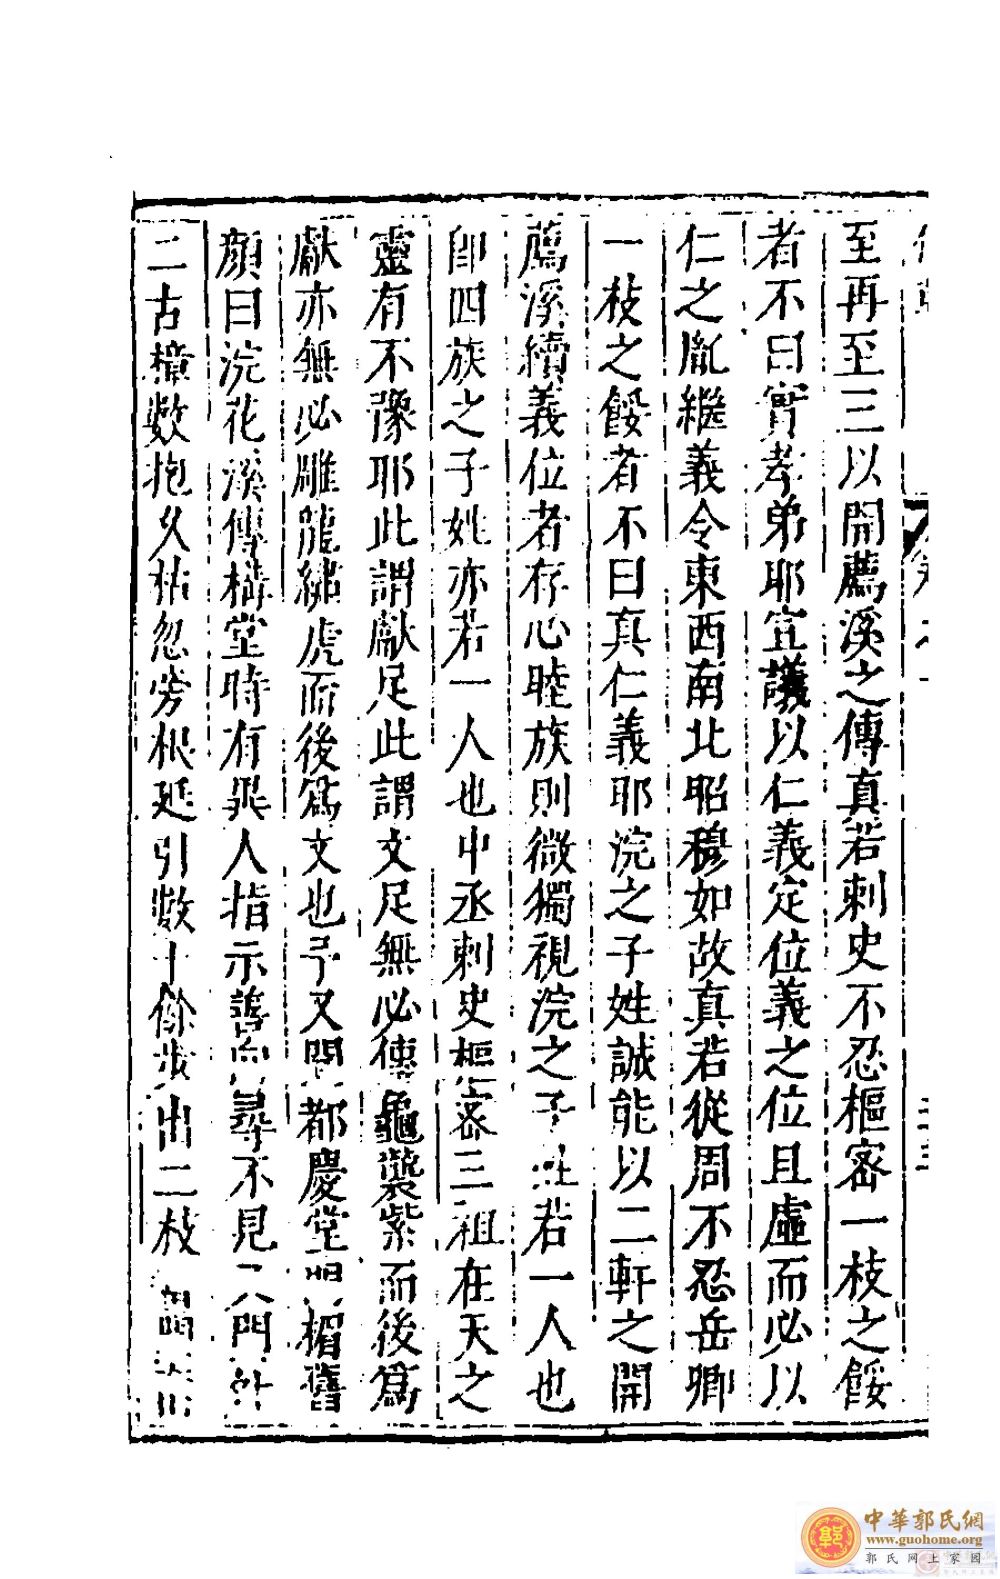 至再至三以開薦溪之傳真若刺史不忍樞密一枝之餒
者不曰實孝弟耶宜議以仁義定位義之位且虛而必以
仁之胤繼義令東西南北昭穆如故真若從周不忍岳卿
一枝之餒者不曰真仁義耶浣之子姓誠能以二軒之開
薦溪續義位者存心睦族則微獨視浣之子姓若一人也
即四族之子姓亦若一人也中丞刺史樞密三祖在天之
靈有不豫耶此謂獻足此謂文足無必傳龜襲紫而後為
獻亦無必雕龍繡虎而後為文也予又聞都慶堂楣舊
顏曰浣花溪傳構堂時有異人指示善向尋不見門外
二古樟數抱久枯忽旁根延引數十餘步出二枝
中華郭氏網
www.guohome.org
郭氏网上家园